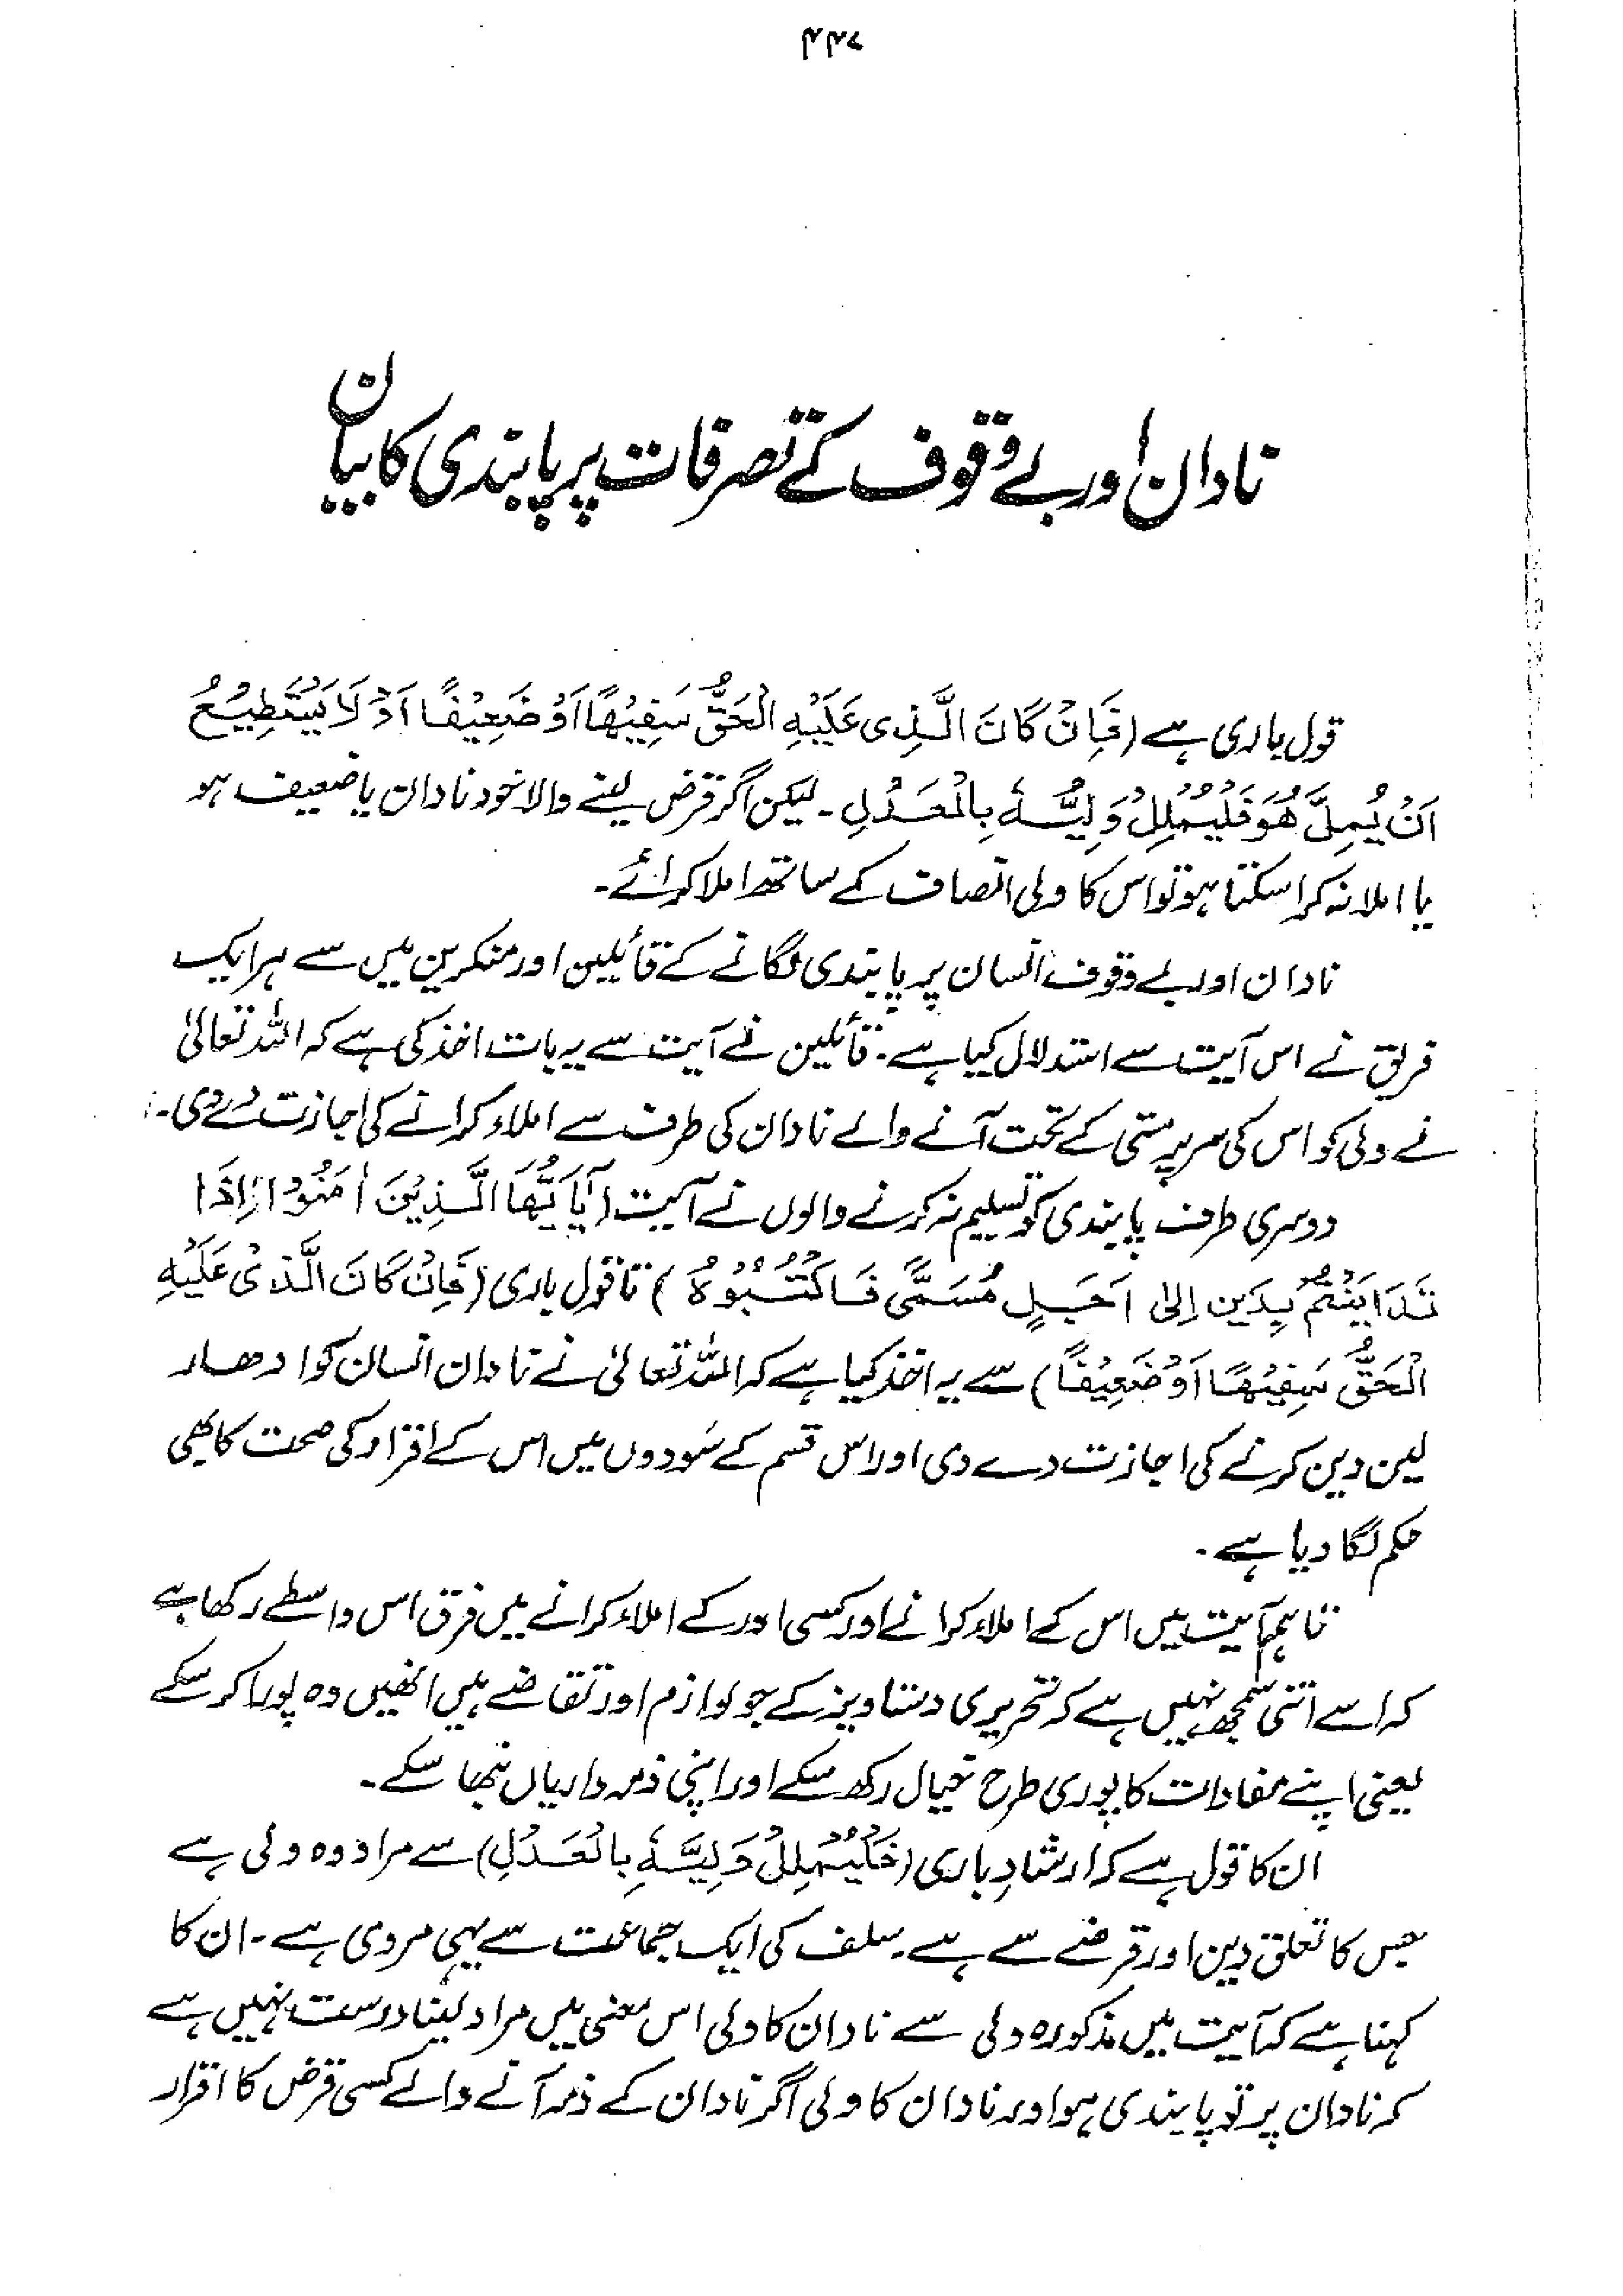 ۴۴۷
نادان اور بے وقوف کے تصرفات پر پابندی کا بیان
قول باری ہے (فَاِنْ كَانَ الَّذِی عَلَیْهِ الْحَقُّ سَفِیْهًا اَوْ ضَعِیْفًا اَوْ لَا یَسْتَطِیْعُ
اَنْ یُمِلَّ هُوَ فَلْیُمْلِلْ وَلِیُّهٗ بِالْعَدْلِ ۔ لیکن اگر قرض لینے والا خود نادان یا ضعیف ہو
یا املا نہ کرا سکتا ہو تو اس کا ولی انصاف کے ساتھ املا کرائے۔
نادان اور بے وقوف انسان پر پابندی لگانے کے قائلین اور منکرین میں سے ہر ایک
فریق نے اس آیت سے استدلال کیا ہے۔ قائلین نے آیت سے یہ بات اخذ کی ہے کہ اللہ تعالیٰ
نے ولی کو اس کی سرپرستی کے تحت آنے والے نادان کی طرف سے املاء کرانے کی اجازت دے دی۔
دوسری طرف پابندی کو تسلیم نہ کرنے والوں نے آیت (یٰٓاَیُّهَا الَّذِیْنَ اٰمَنُوْا اِذَا
تَدَایَنْتُمْ بِدَیْنٍ اِلیٰ اَجَلٍ مُّسَمًّی فَاكْتُبُوْهُ) تا قول باری (فَاِنْ كَانَ الَّذِیْ عَلَیْهِ
الْحَقُّ سَفِیْهًا اَوْ ضَعِیْفًا) سے یہ اخذ کیا ہے کہ اللہ تعالیٰ نے نادان انسان کو ادھار
لین دین کرنے کی اجازت دے دی اور اس قسم کے سودوں میں اس کے اقرار کی صحت کا بھی
حکم لگا دیا ہے۔
تاہم آیت میں اس کے املاء کرانے اور کسی اور کے املاء کرانے میں فرق اس واسطے رکھا ہے
کہ اسے اتنی سمجھ نہیں ہے کہ تحریری دستاویز کے جو لوازم اور تقاضے ہیں انھیں وہ پورا کر سکے
یعنی اپنے مفادات کا پوری طرح خیال رکھ سکے اور اپنی ذمہ داریاں نبھا سکے۔
ان کا قول ہے کہ ارشادِ باری (فَلْیُمْلِلْ وَلِیُّهٗ بِالْعَدْلِ) سے مراد وہ ولی ہے
جس کا تعلق دین اور قرضے سے ہے۔ سلف کی ایک جماعت سے یہی مروی ہے۔ ان کا
کہنا ہے کہ آیت میں مذکورہ ولی سے نادان کا ولی اس معنی میں مراد لینا درست نہیں ہے
کہ نادان پر تو پابندی ہو اور نادان کا ولی اگر نادان کے ذمہ آنے والے کسی قرض کا اقرار